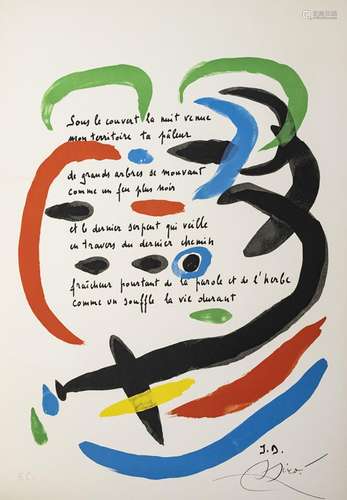 Sous le couvert la nuit venue
mon territoire ta pâleur
de grands arbres se mouvant
comme un feu plus noir
et le dernier serpent qui veille
en travers du dernier chemin
fraîcheur pourtant de la parole et de l'herbe
comme un souffle la vie durant
J.D.
Miró.